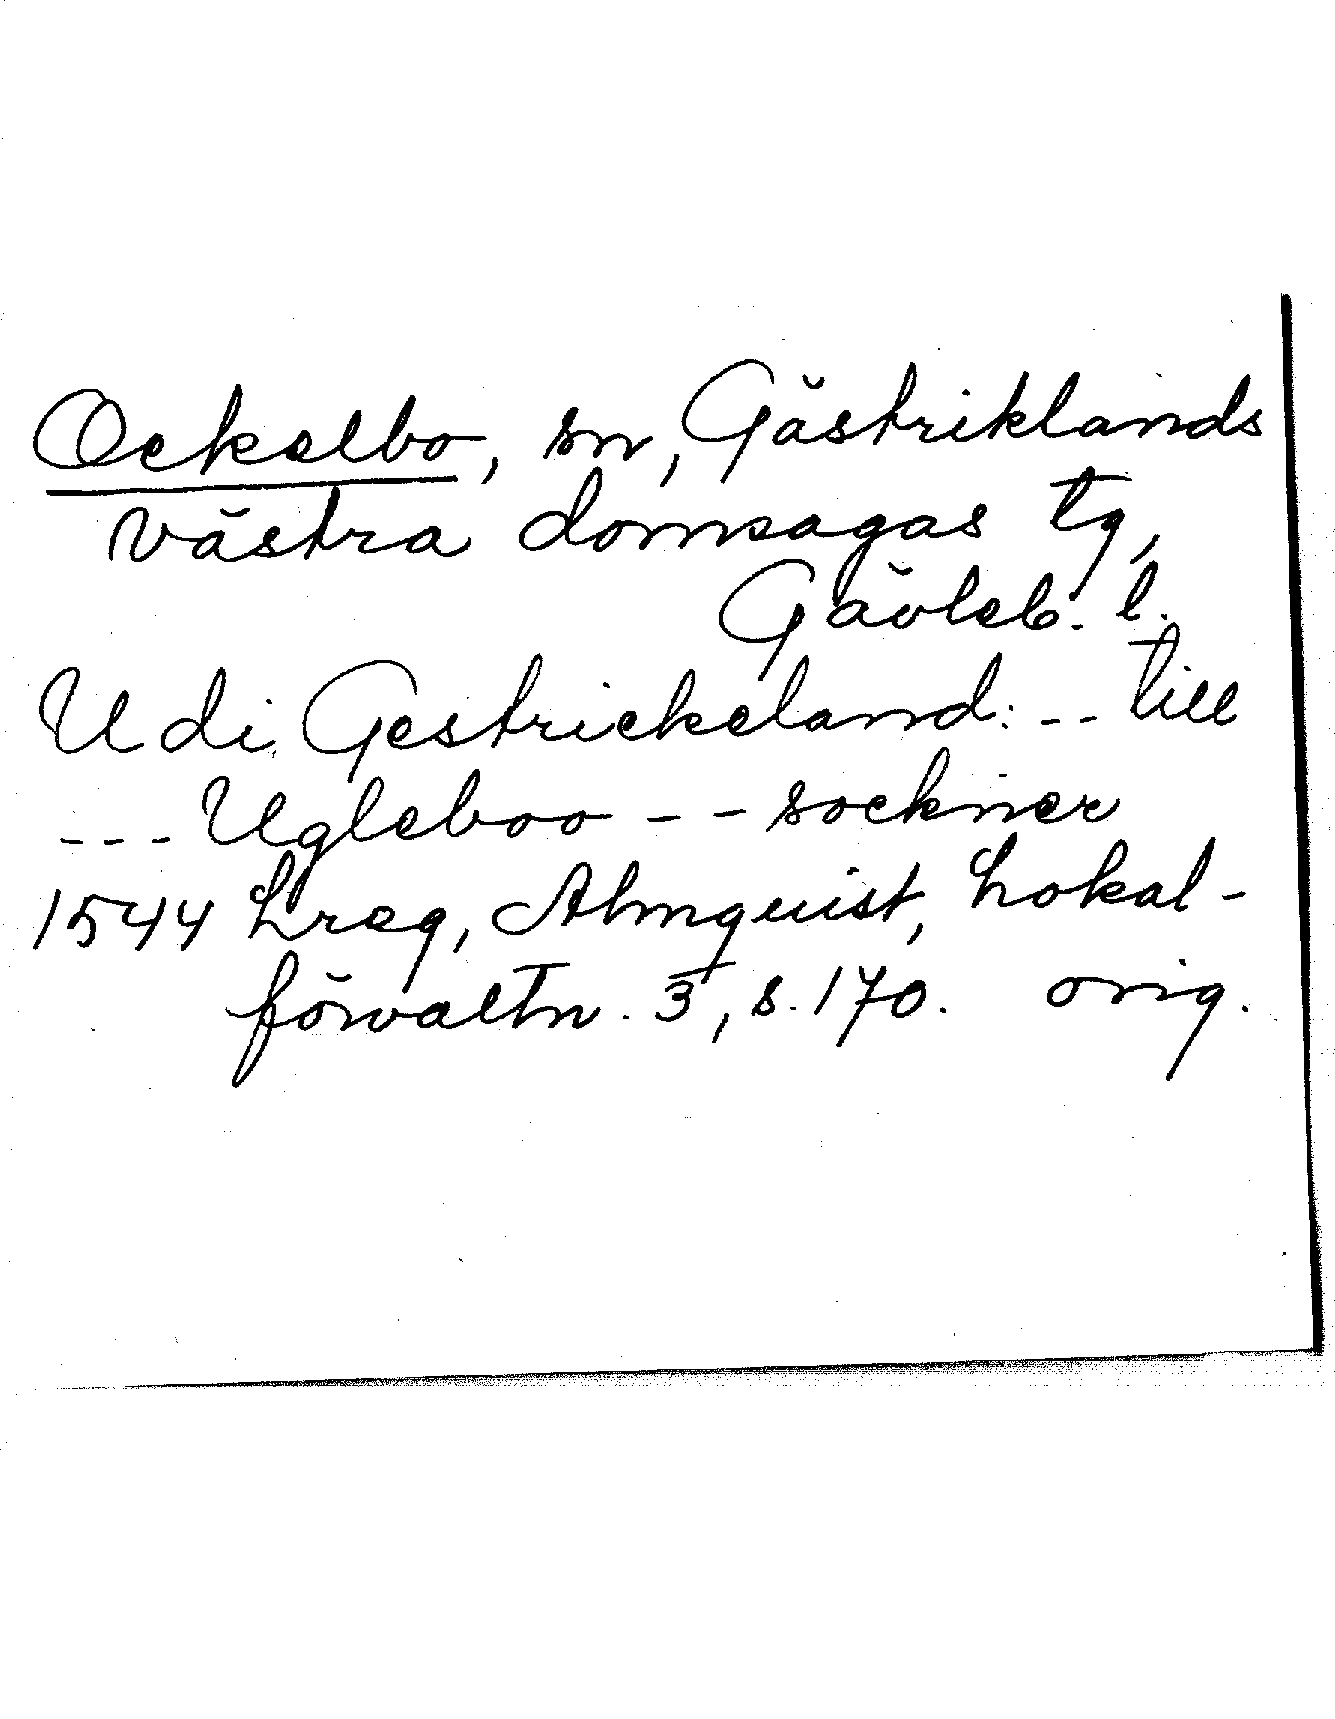 Ockelbo, sn, Gästriklands
västra domsagas tg,
Gävleb. l.
Udi Gestrickeland: -- till
--- Ugleboo -- sockner
1544 Lreg, Almquist, Lokal-
förvaltn. 3, s. 170. orig.